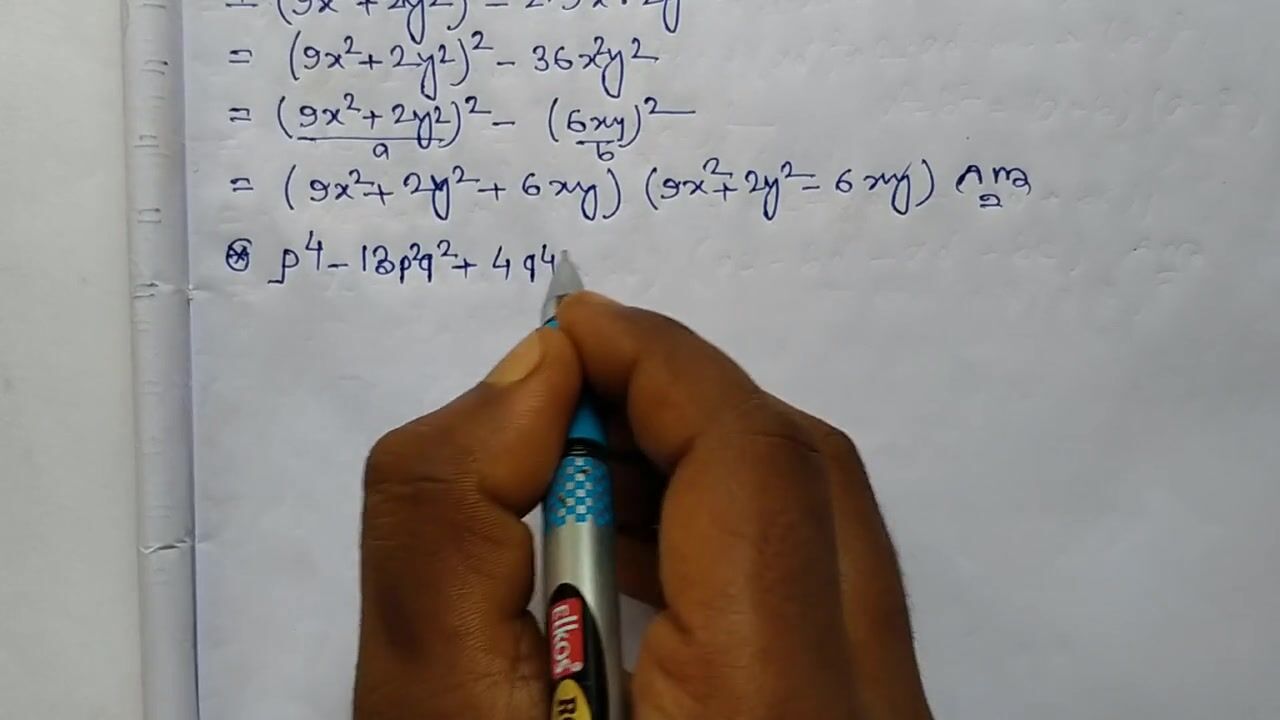 = (9x² + 2y²)² - 36x²y²
= (9x² + 2y²)² - (6xy)²
a b
= (9x² + 2y² + 6xy) (9x² + 2y² - 6xy) Ans
p⁴ - 13p²q² + 4q⁴
Elkos